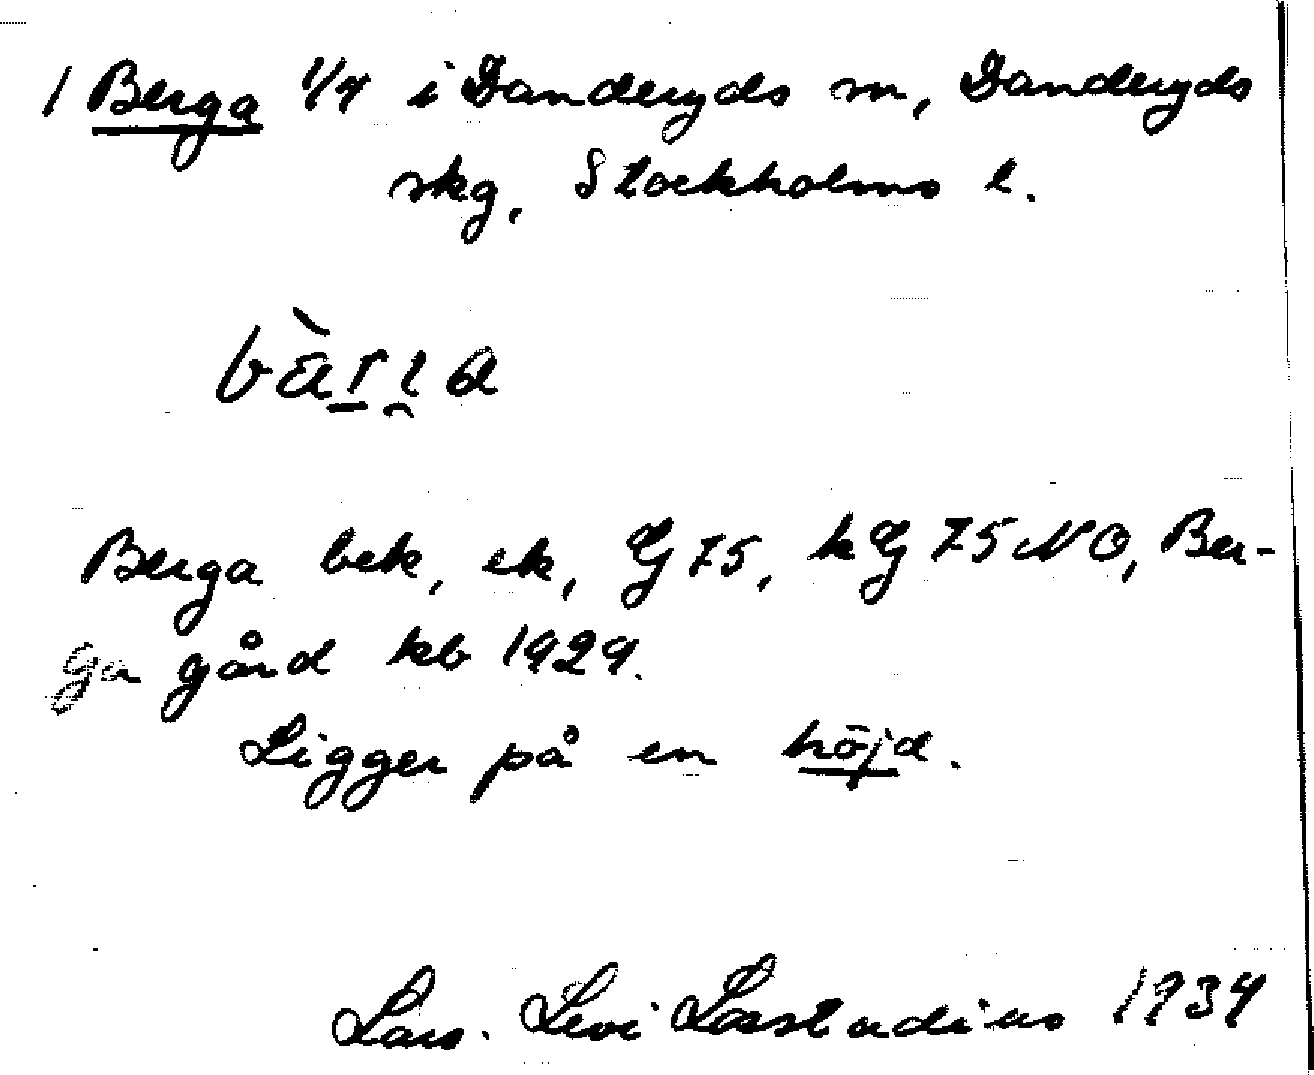 1 Berga 1/4 i Danderyds sn, Danderyds
skg, Stockholms l.
bàrɩa
Berga bek, ek, G 75, hG 75 NO, Ber-
ga gård kb 1929.
Ligger på en höjd.
Lars. Levi Læstadius 1934